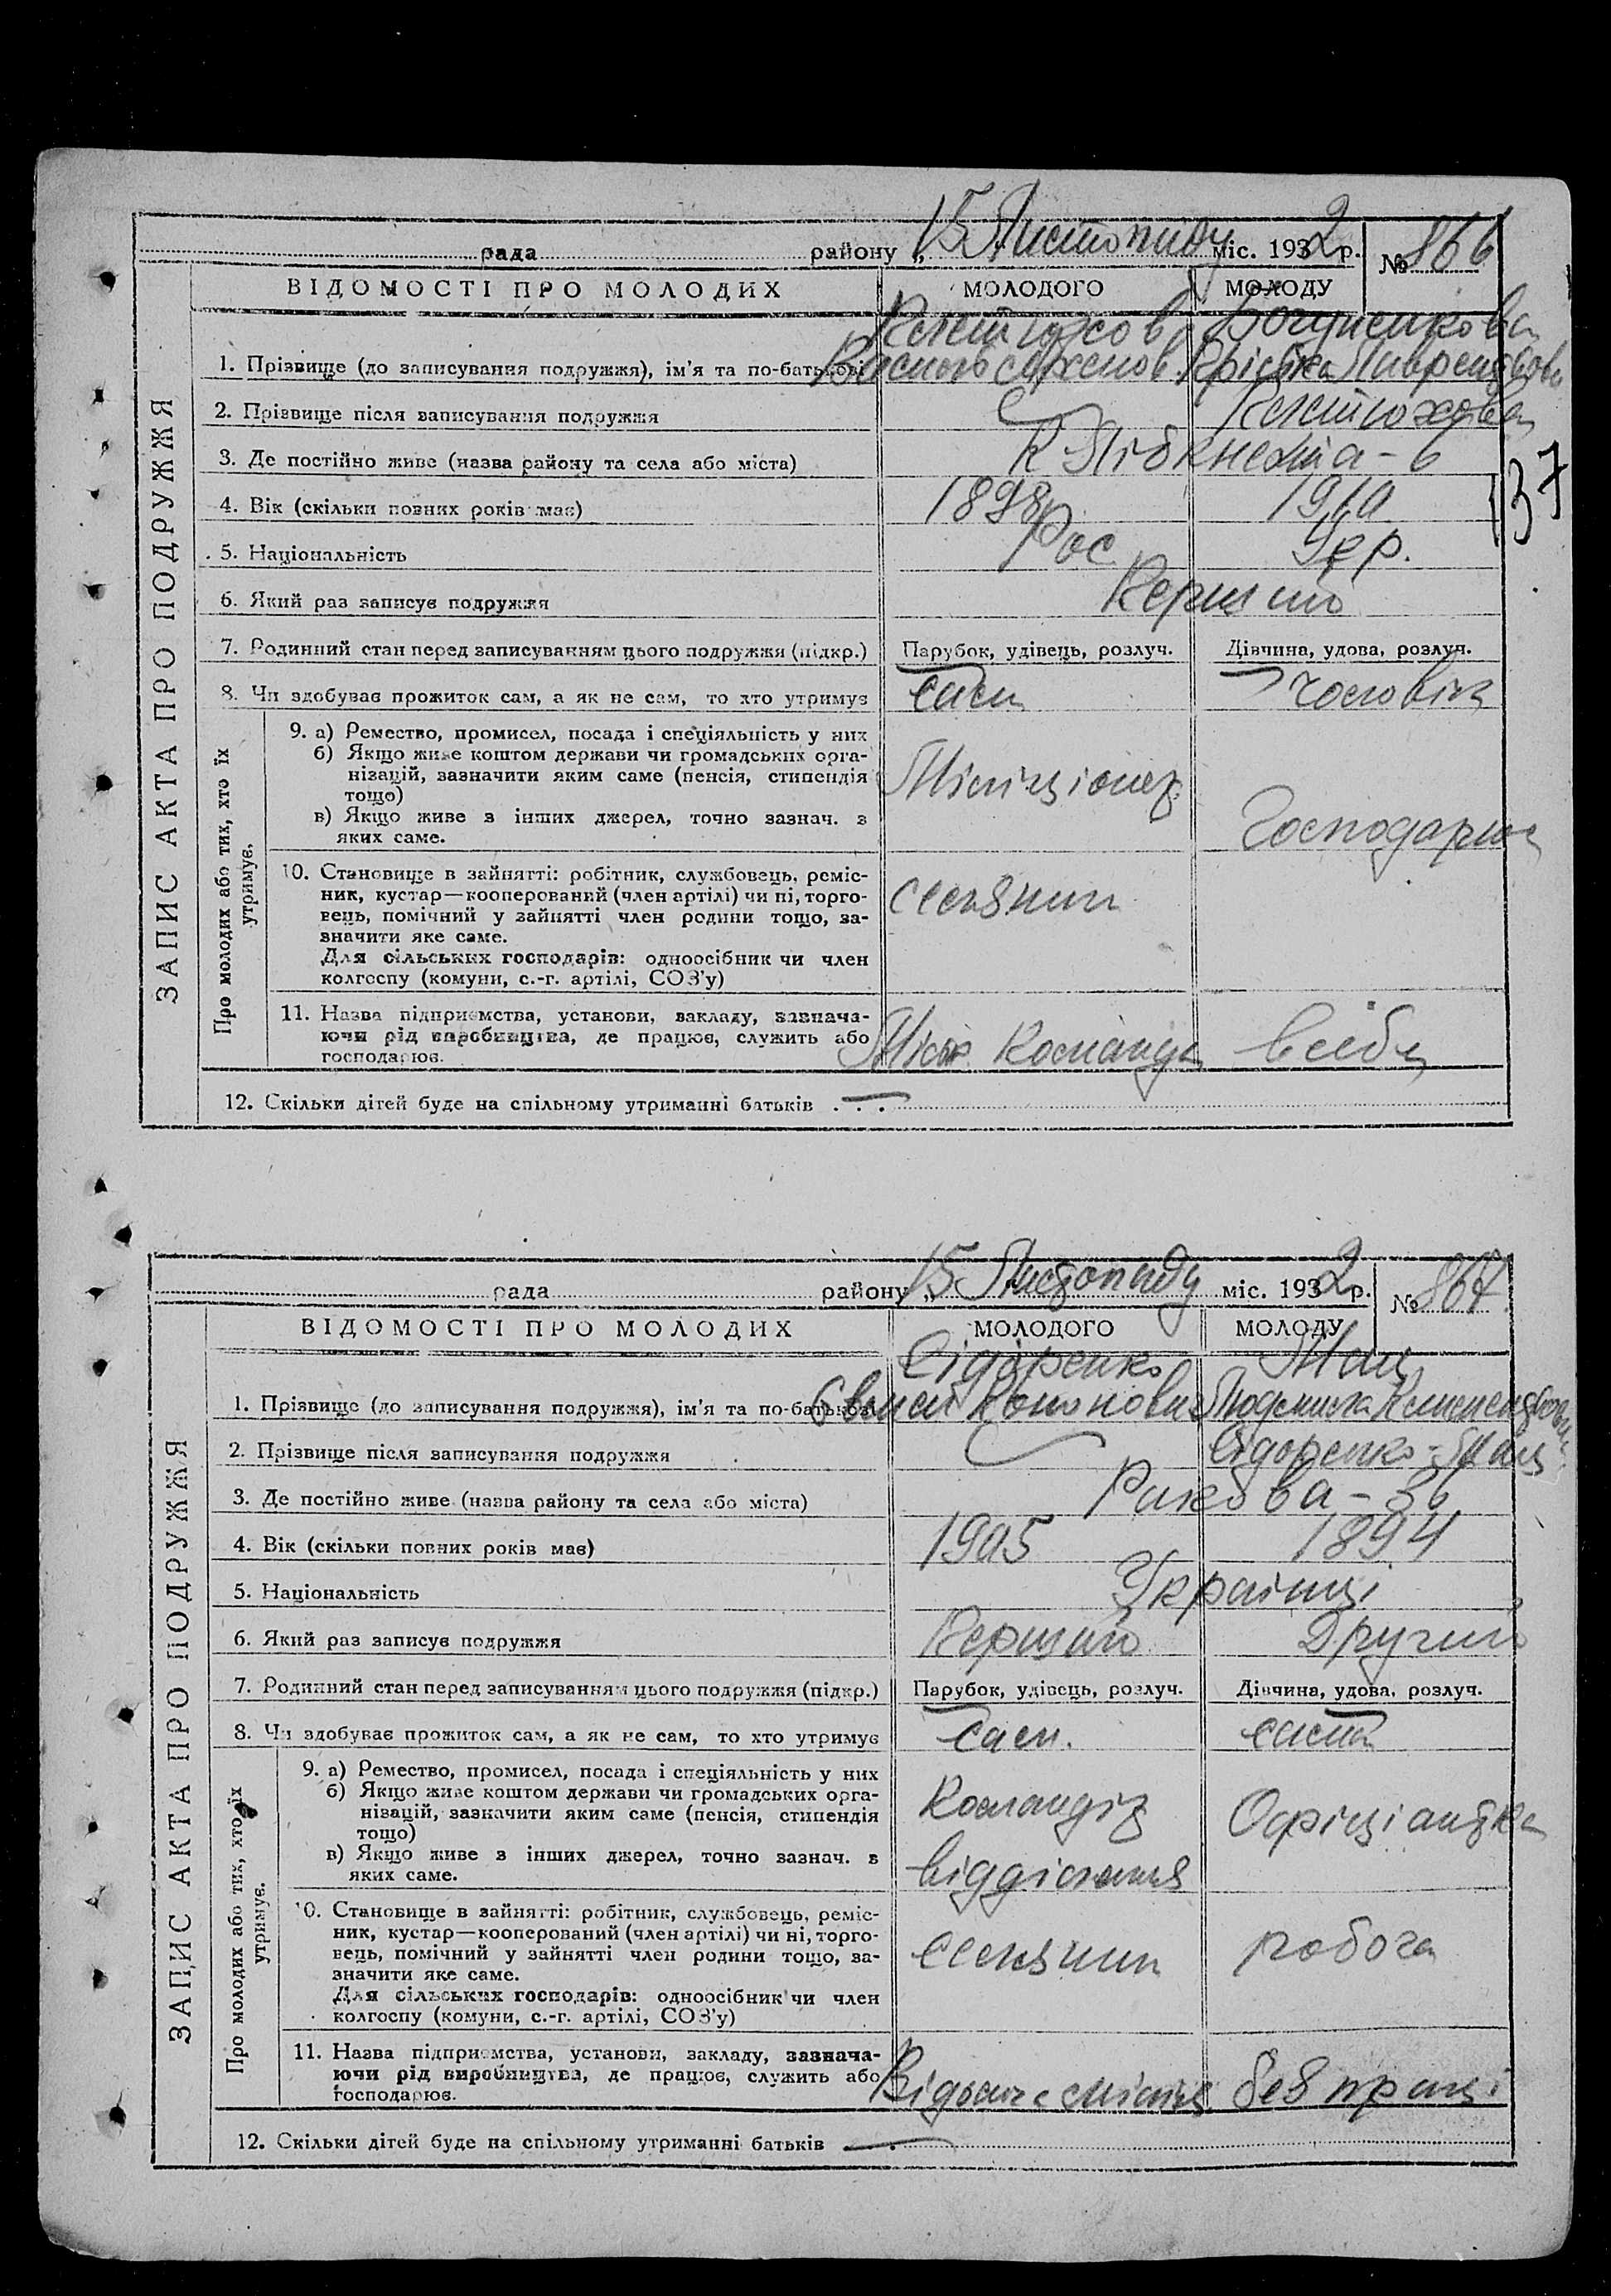 рада району „ 15 Листопаду міс. 1932 р. № 866
ВІДОМОСТІ ПРО МОЛОДИХ МОЛОДОГО МОЛОДУ
1. Прізвище (до записування подружжя), ім'я та по-батькові
2. Прізвище після записування подружжя
3. Де постійно живе (назва району та села або міста) К Лібкнехта - 6
4. Вік (скільки повних років має) 1898 1910
137
5. Національність Рос Укр.
6. Який раз записує подружжя Перший
7. Родинний стан перед записуванням цього подружжя (підкр.) Парубок, удівець, розлуч. Дівчина, удова, розлуч.
8. Чи здобуває прожиток сам, а як не сам, то хто утримує сам чоловік
9. а) Ремество, промисел, посада і спеціяльність у них
б) Якщо живе коштом держави чи громадських орга-
нізацій, зазначити яким саме (пенсія, стипендія
тощо)
Міліціонер
в) Якщо живе з інших джерел, точно зазнач. з
яких саме.
Господарка
10. Становище в зайнятті: робітник, службовець, реміс-
ник, кустар—кооперований (член артілі) чи ні, торго-
вець, помічний у зайнятті член родини тощо, за-
значити яке саме.
селянин
Для сільських господарів: одноосібник чи член
колгоспу (комуни, с.-г. артілі, СОЗ'у)
11. Назва підприємства, установи, закладу, зазнача-
ючи рід виробництва, де працює, служить або
господарює.
12. Скільки дітей буде на спільному утриманні батьків . . .
ЗАПИС АКТА ПРО ПОДРУЖЖЯ
Про молодих або тих, хто їх
утримує.
рада району „ 15 Листопаду міс. 1932 р. № 867
ВІДОМОСТІ ПРО МОЛОДИХ МОЛОДОГО МОЛОДУ
Сідоренко
1. Прізвище (до записування подружжя), ім'я та по-батькові Кононович Людмила Климентьовн
2. Прізвище після записування подружжя
3. Де постійно живе (назва району та села або міста) Ракова - 36
4. Вік (скільки повних років має) 1905 1894
5. Національність Українці
6. Який раз записує подружжя Перший Другий
7. Родинний стан перед записуванням цього подружжя (підкр.) Парубок, удівець, розлуч. Дівчина, удова, розлуч.
8. Чи здобуває прожиток сам, а як не сам, то хто утримує сам. сама
9. а) Ремество, промисел, посада і спеціяльність у них
б) Якщо живе коштом держави чи громадських орга-
нізацій, зазначити яким саме (пенсія, стипендія
тощо)
Командір Офіціантка
в) Якщо живе з інших джерел, точно зазнач. з
яких саме.
відділення
10. Становище в зайнятті: робітник, службовець, реміс-
ник, кустар—кооперований (член артілі) чи ні, торго-
вець, помічний у зайнятті член родини тощо, за-
значити яке саме.
селянин робоча
Для сільських господарів: одноосібник чи член
колгоспу (комуни, с.-г. артілі, СОЗ'у)
11. Назва підприємства, установи, закладу, зазнача-
ючи рід виробництва, де працює, служить або
господарює.
без праці
12. Скільки дітей буде на спільному утриманні батьків
ЗАПИС АКТА ПРО ПОДРУЖЖЯ
Про молодих або тих, хто їх
утримує.